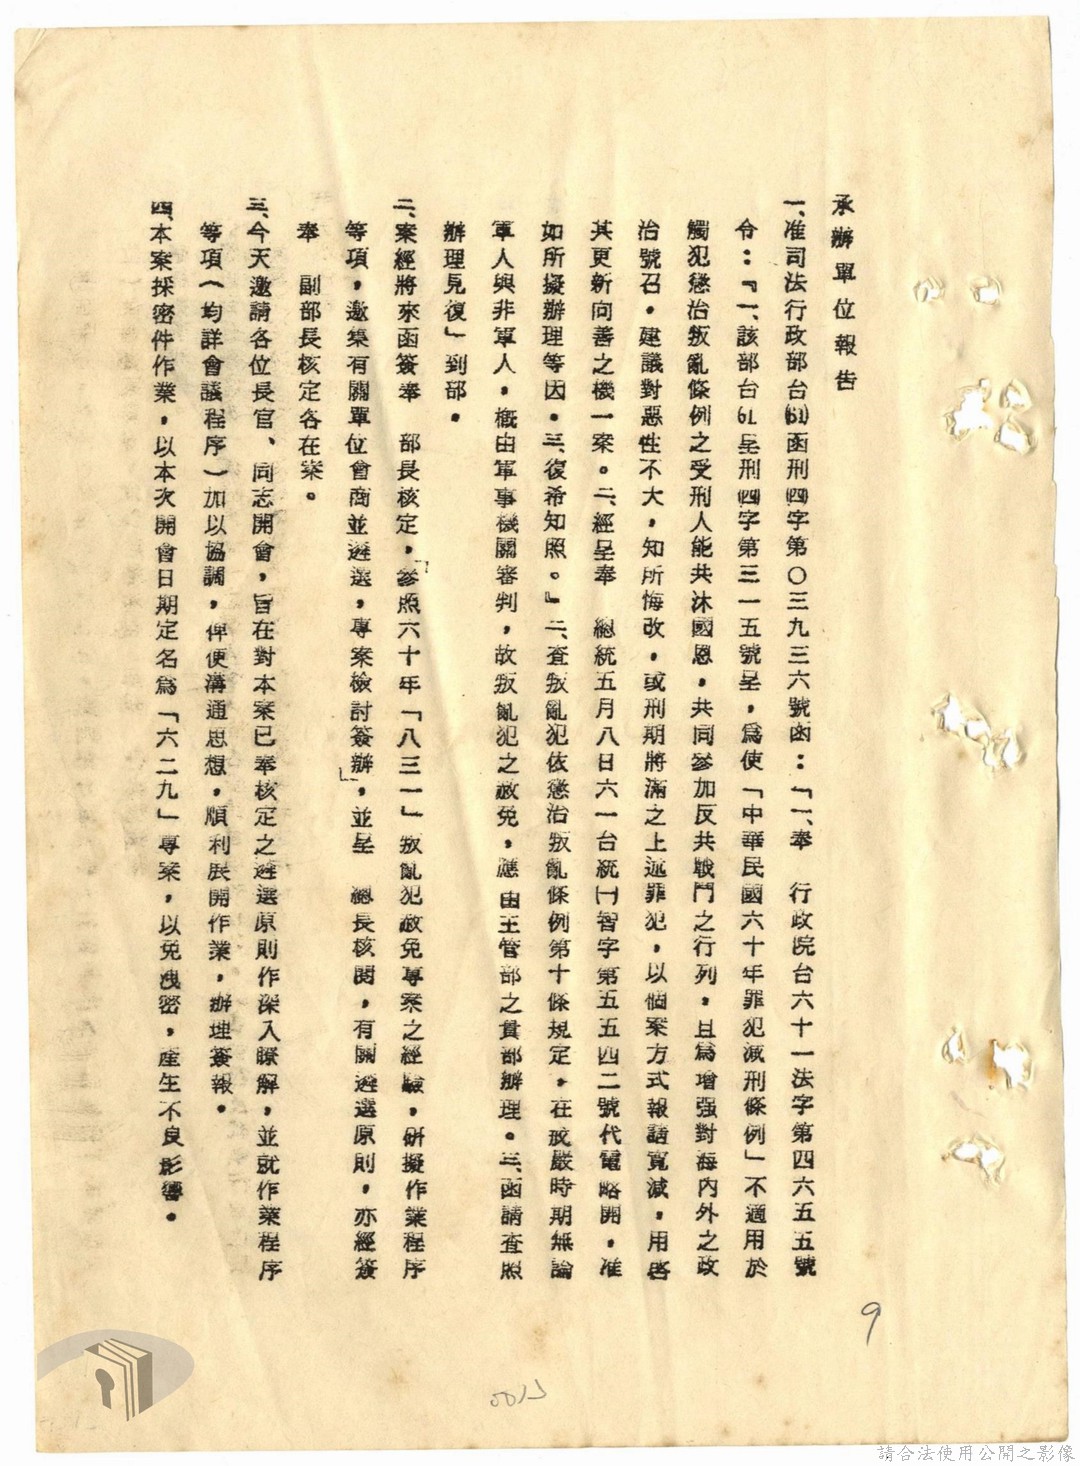 承辦單位報告
一、准司法行政部台(61)函刑(四)字第〇三九三六號函：「一、奉　行政院台六十一法字第四六五五號
令：『一、該部台61呈刑(四)字第三一五號呈，爲使「中華民國六十年罪犯減刑條例」不適用於
觸犯懲治叛亂條例之受刑人能共沐國恩，共同參加反共戰鬥之行列，且爲增强對海內外之政
治號召，建議對惡性不大，知所悔改，或刑期將滿之上述罪犯，以個案方式報請寬減，用啓
其更新向善之機一案。二、經呈奉　總統五月八日六一台統(一)智字第五五四二號代電略開，准
如所擬辦理等因。三、復希知照。』二、查叛亂犯依懲治叛亂條例第十條規定，在戒嚴時期無論
軍人與非軍人，概由軍事機關審判，故叛亂犯之赦免，應由主管部之貴部辦理。三、函請查照
辦理見復」到部。
二、案經將來函簽奉　部長核定，「參照六十年「八三一」叛亂犯赦免專案之經驗，研擬作業程序
等項，邀集有關單位會商並遴選，專案檢討簽辦」，並呈　總長核閱，有關遴選原則，亦經簽
奉　副部長核定各在案。
三、今天邀請各位長官、同志開會，旨在對本案已奉核定之遴選原則作深入瞭解，並就作業程序
等項（均詳會議程序）加以協調，俾便溝通思想，順利展開作業，辦理簽報。
四、本案採密件作業，以本次開會日期定名爲「六二九」專案，以免洩密，產生不良影響。
9
請合法使用公開之影像